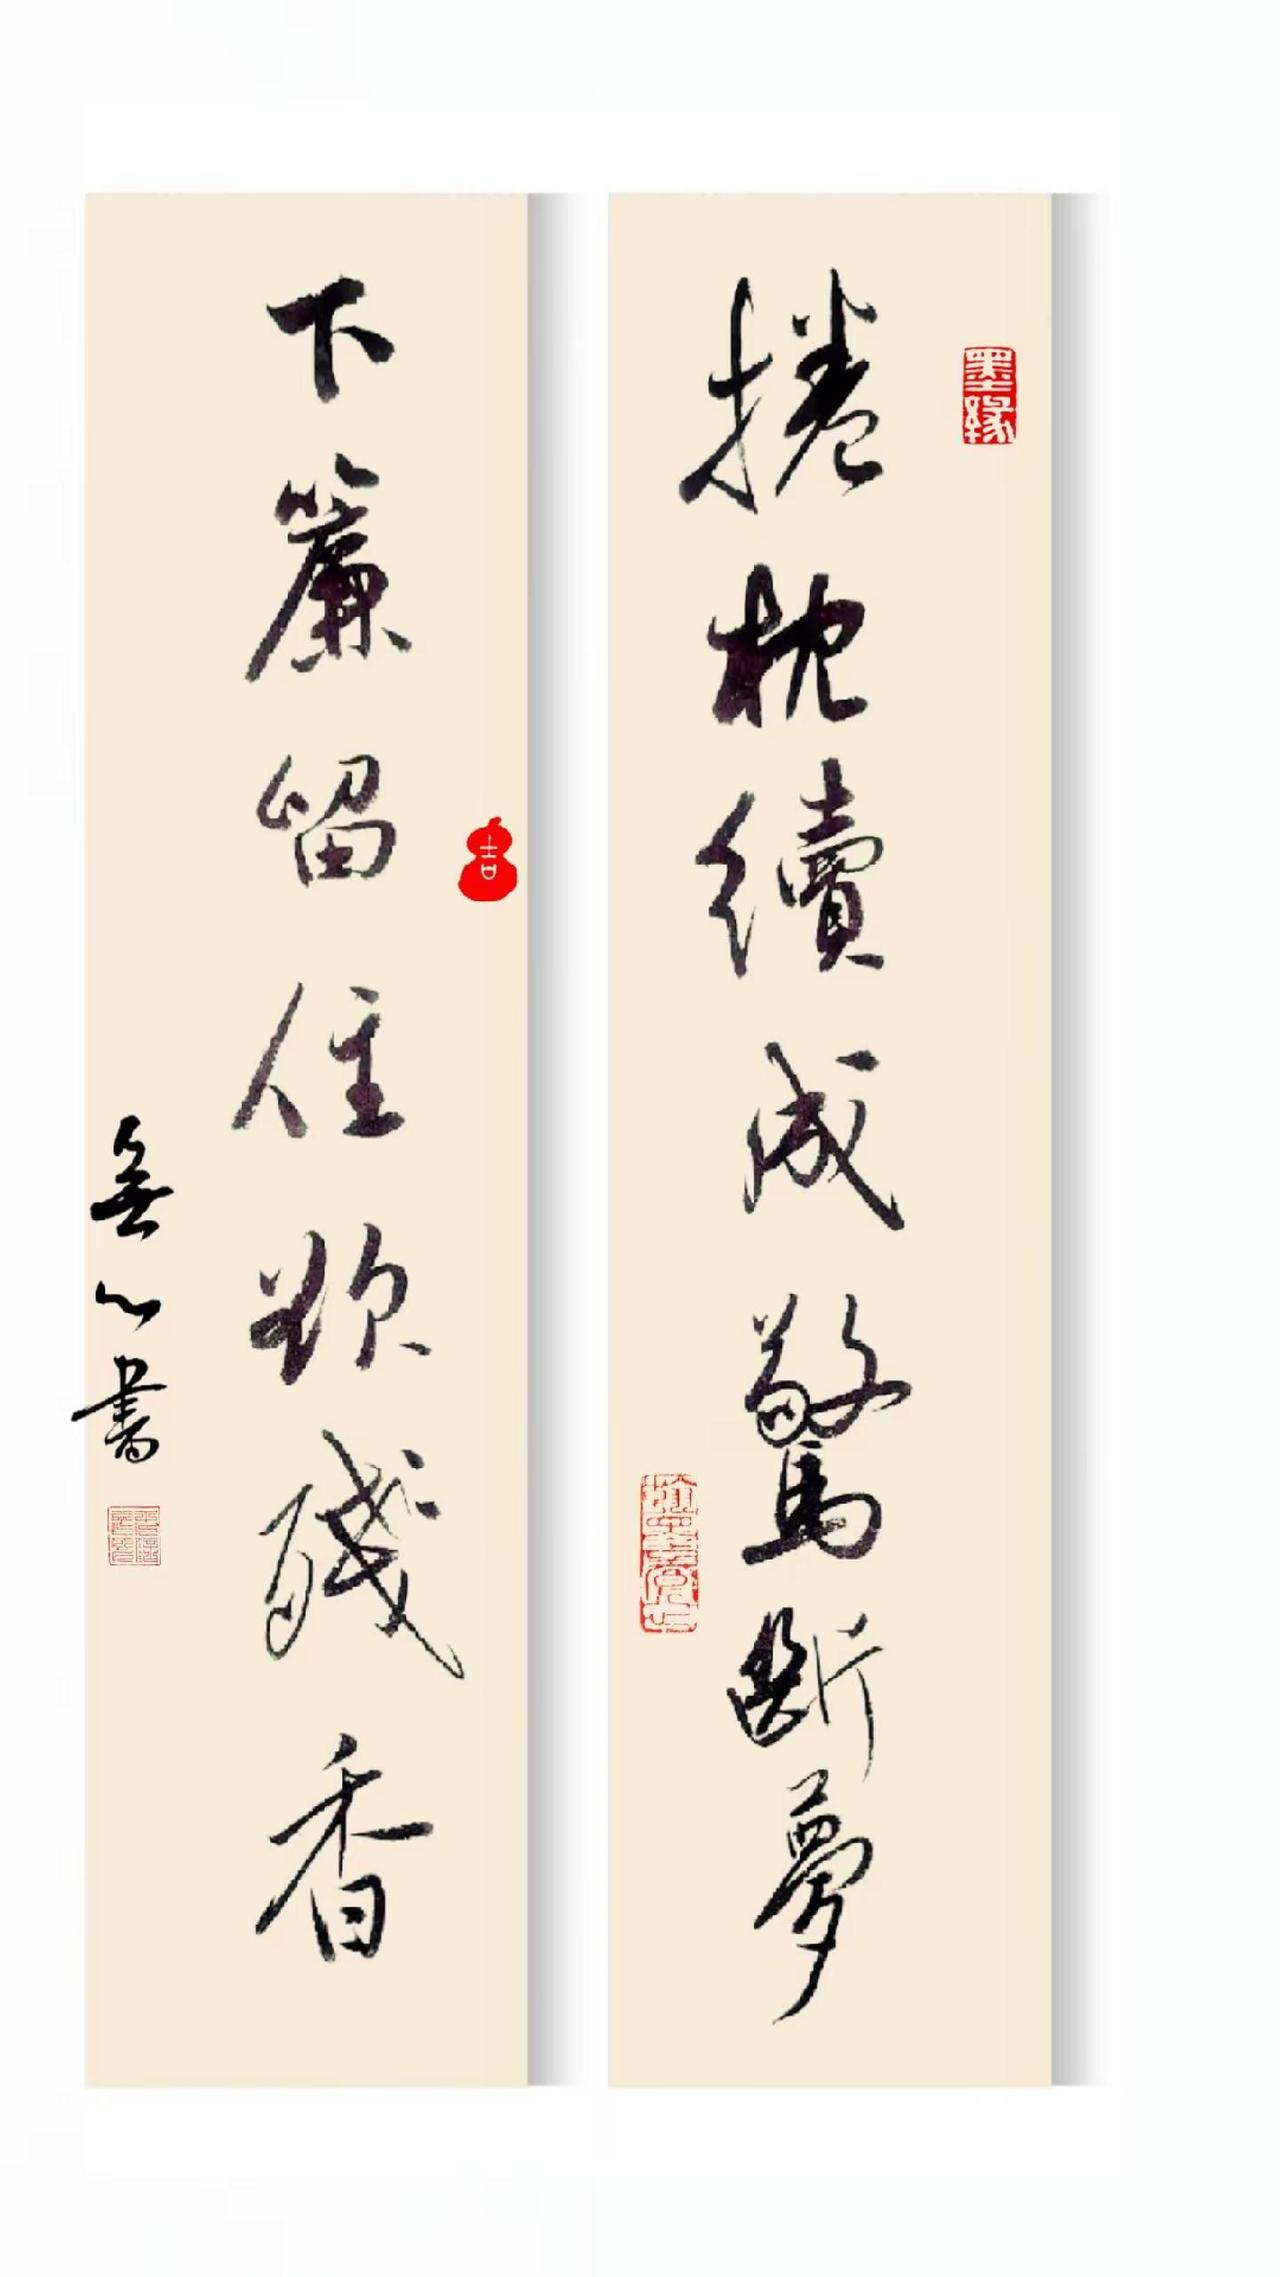 墨緣
捲枕續成驚斷夢
下簾留住欲殘香
吉
無心書